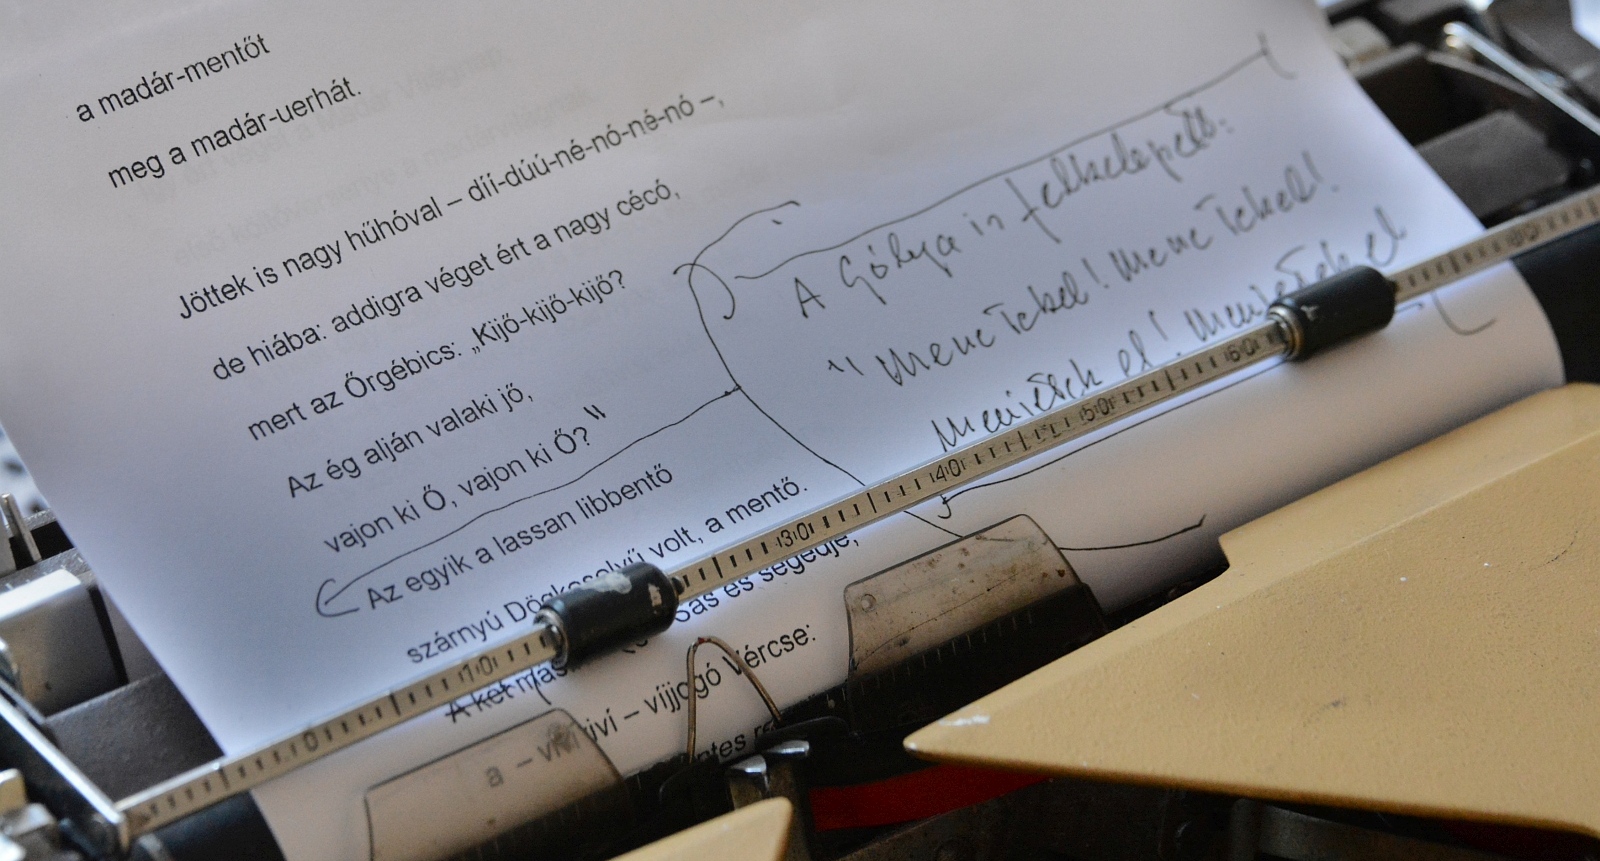 a madár-mentőt
meg a madár-uerhát.
Jöttek is nagy hűhóval – díí-dúú-né-nó-né-nó –,
de hiába: addigra véget ért a nagy cécó,
mert az Őrgébics: „Kijő-kijő-kijő?
Az ég alján valaki jő,
vajon ki Ő, vajon ki Ő?"
Az egyik a lassan libbentő
szárnyú Dögkeselyű volt, a mentő.
A két más Sas és segédje,
a – víjjogó Vércse:
A Gólya is felkelepelt:
"Mene Tekel! Mene Tekel!
Menjetek el! Menjetek el
0 10 30 40 50 60 80